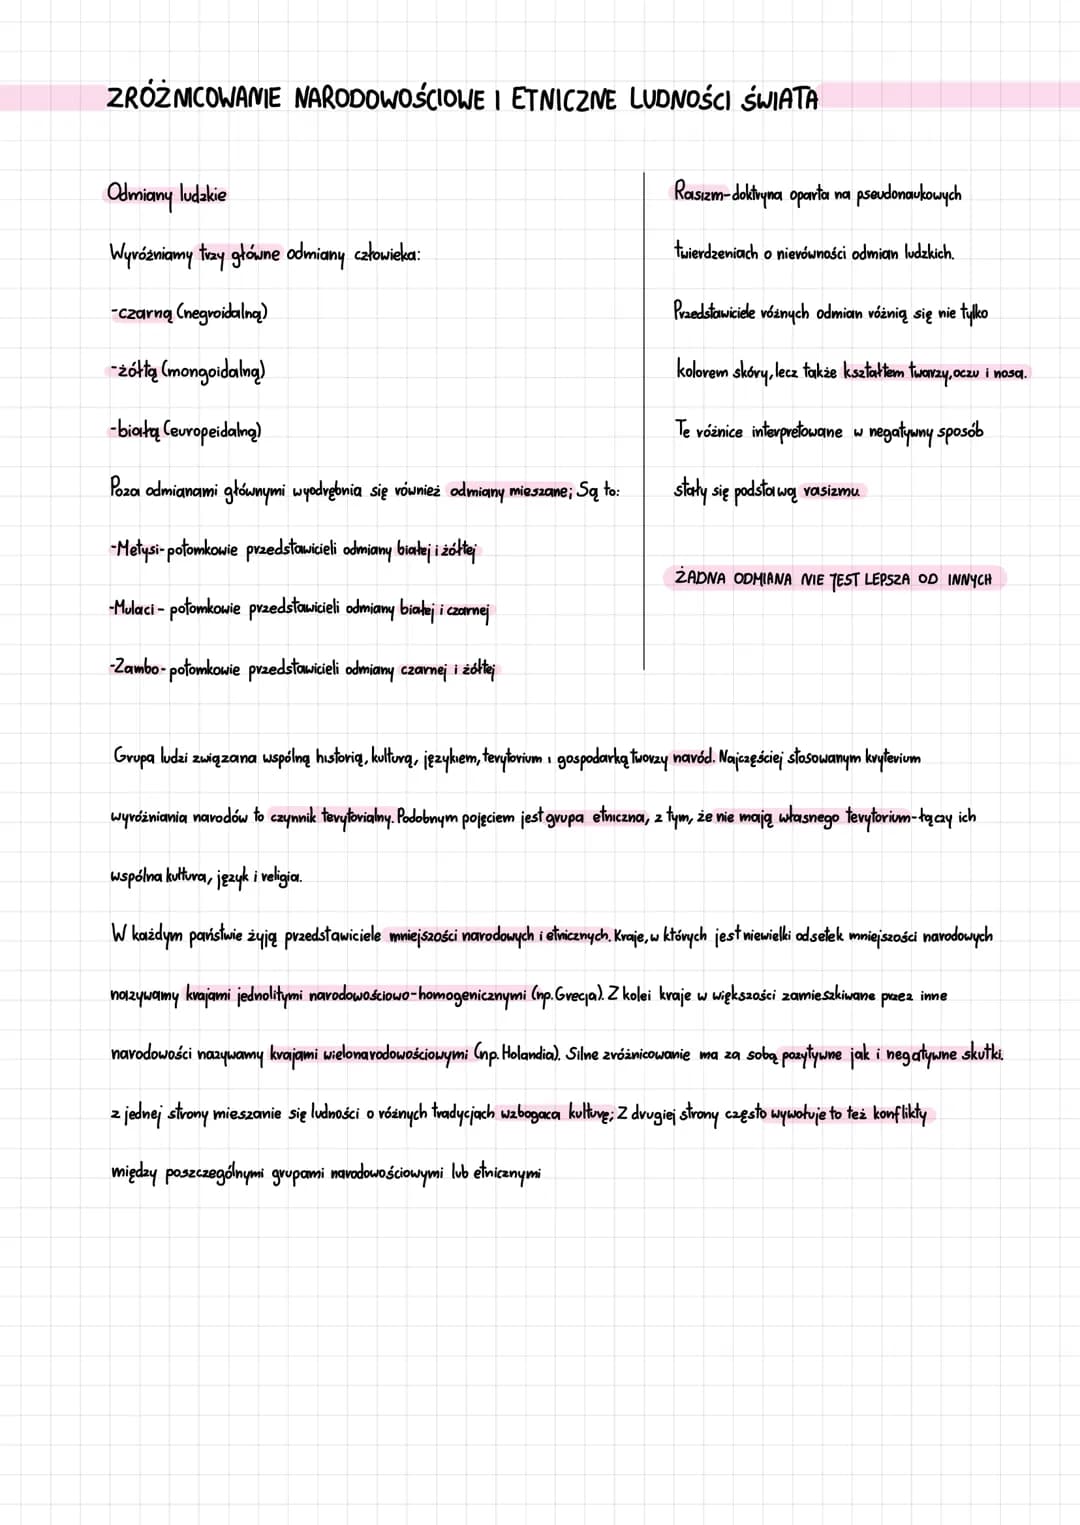 ZRÓŻNICOWANIE NARODOWOŚCIOWE I ETNICZNE LUDNOŚCI ŚWIATA
Odmiany ludzkie
Wyróżniamy trzy główne odmiany człowieka:
-czarną (negroidalną)
-żółtą (mongoidalną)
-białą (europeidalną)
Poza odmianami głównymi wyodrębnia się również odmiany mieszane; Są to:
-Metysi-potomkowie przedstawicieli odmiany białej i żółtej
-Mulaci - potomkowie przedstawicieli odmiany białej i czarnej
-Zambo- potomkowie przedstawicieli odmiany czarnej i żółtej
Rasizm-doktryna oparta na pseudonaukowych
twierdzeniach o nierówności odmian ludzkich.
Przedstawiciele różnych odmian różnią się nie tylko
kolorem skóry, lecz także kształtem twarzy, oczu i nosa.
Te różnice interpretowane w negatywny sposób
stały się podstawą rasizmu
ŻADNA ODMIANA NIE JEST LEPSZA OD INNYCH
Grupa ludzi związana wspólną historią, kulturą, językiem, terytorium i gospodarką tworzy naród. Najczęściej stosowanym kryterium
wyróżniania narodów to czynnik terytorialny. Podobnym pojęciem jest grupa etniczna, z tym, że nie mają własnego terytorium-łączy ich
wspólna kultura, język i religia.
W każdym państwie żyją przedstawiciele mniejszości narodowych i etnicznych. Kraje, w których jest niewielki odsetek mniejszości narodowych
nazywamy krajami jednolitymi narodowościowo-homogenicznymi (np. Grecja). Z kolei kraje w większości zamieszkiwane przez inne
narodowości nazywamy krajami wielonarodowościowymi (np. Holandia). Silne zróżnicowanie ma za sobą pozytywne jak i negatywne skutki.
z jednej strony mieszanie się ludności o różnych tradycjach wzbogaca kulturę; Z drugiej strony często wywołuje to też konflikty
między poszczególnymi grupami narodowościowymi lub etnicznymi